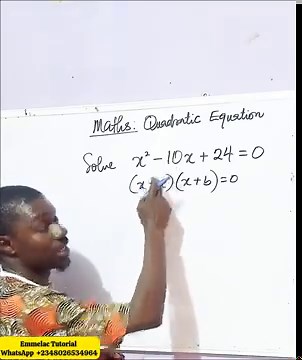 Maths: Quadratic Equation
Solve x² - 10x + 24 = 0
(x + )(x + b) = 0
Emmelac Tutorial
WhatsApp +2348026534964